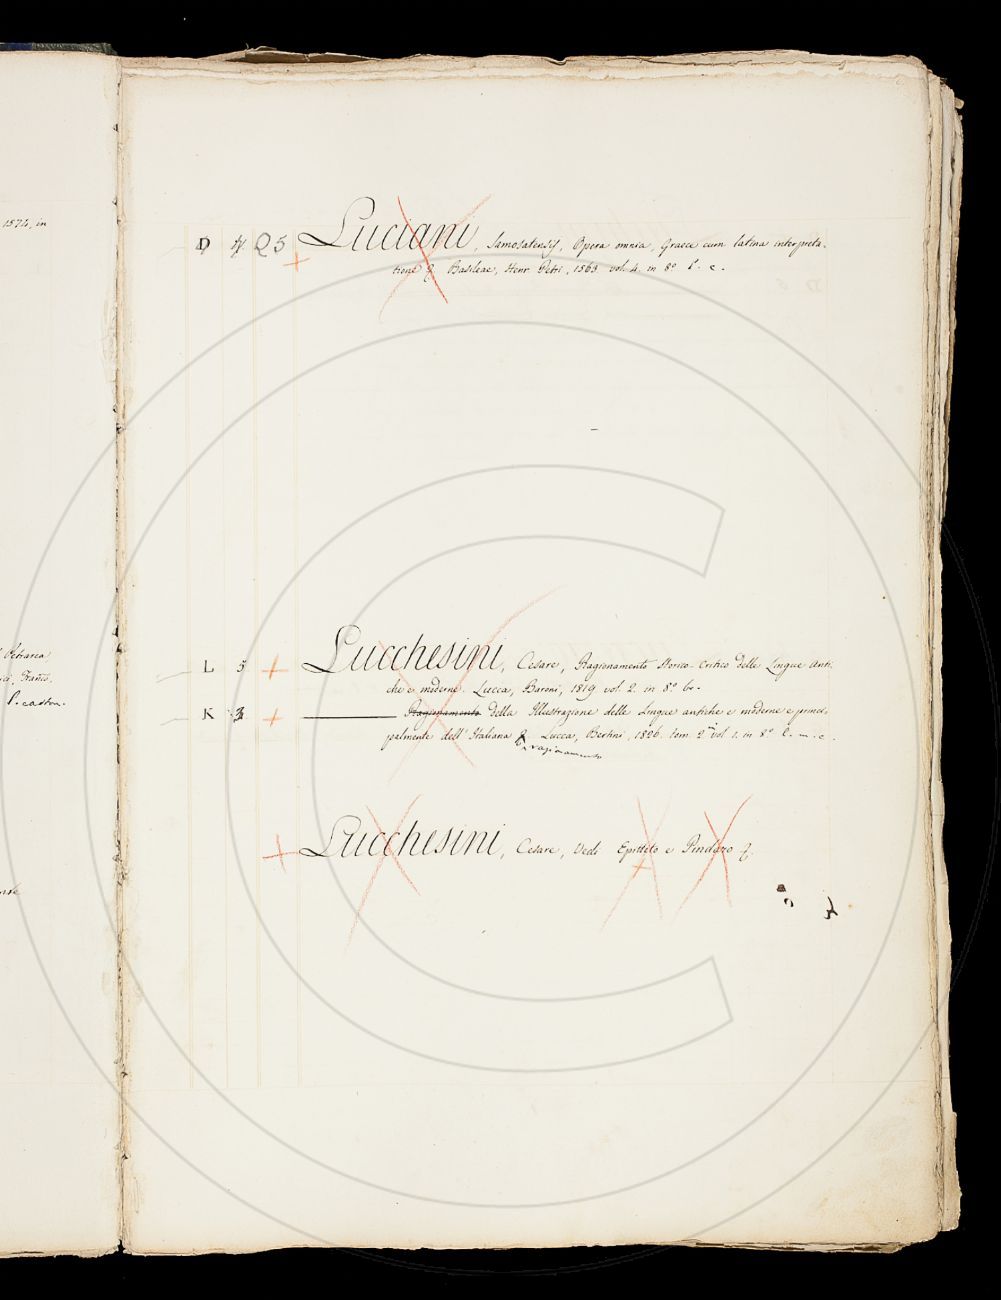 1574, in
D 4 Q5 Luciani, Samosatensis, Opera omnia, Graece cum latina interpreta-
tione &. Basileae, Henr. Petri, 1563 vol. 4. in 8.º P. c.
Petrarca
Franc.
P. carton.
L 5 Lucchesini, Cesare, Ragionamento Storico-Critico delle Lingue Anti-
che e moderne. Lucca, Baroni, 1819 vol. 2. in 8.º br.
K 3 Ragionamento della Illustrazione delle Lingue antiche e moderne e princi-
palmente dell'Italiana & Lucca, Bertini, 1826. tom. 2 vol 1. in 8.º C. m. c.
ragionamento
Lucchesini, Cesare, Vedi Epitteto e Pindaro &.